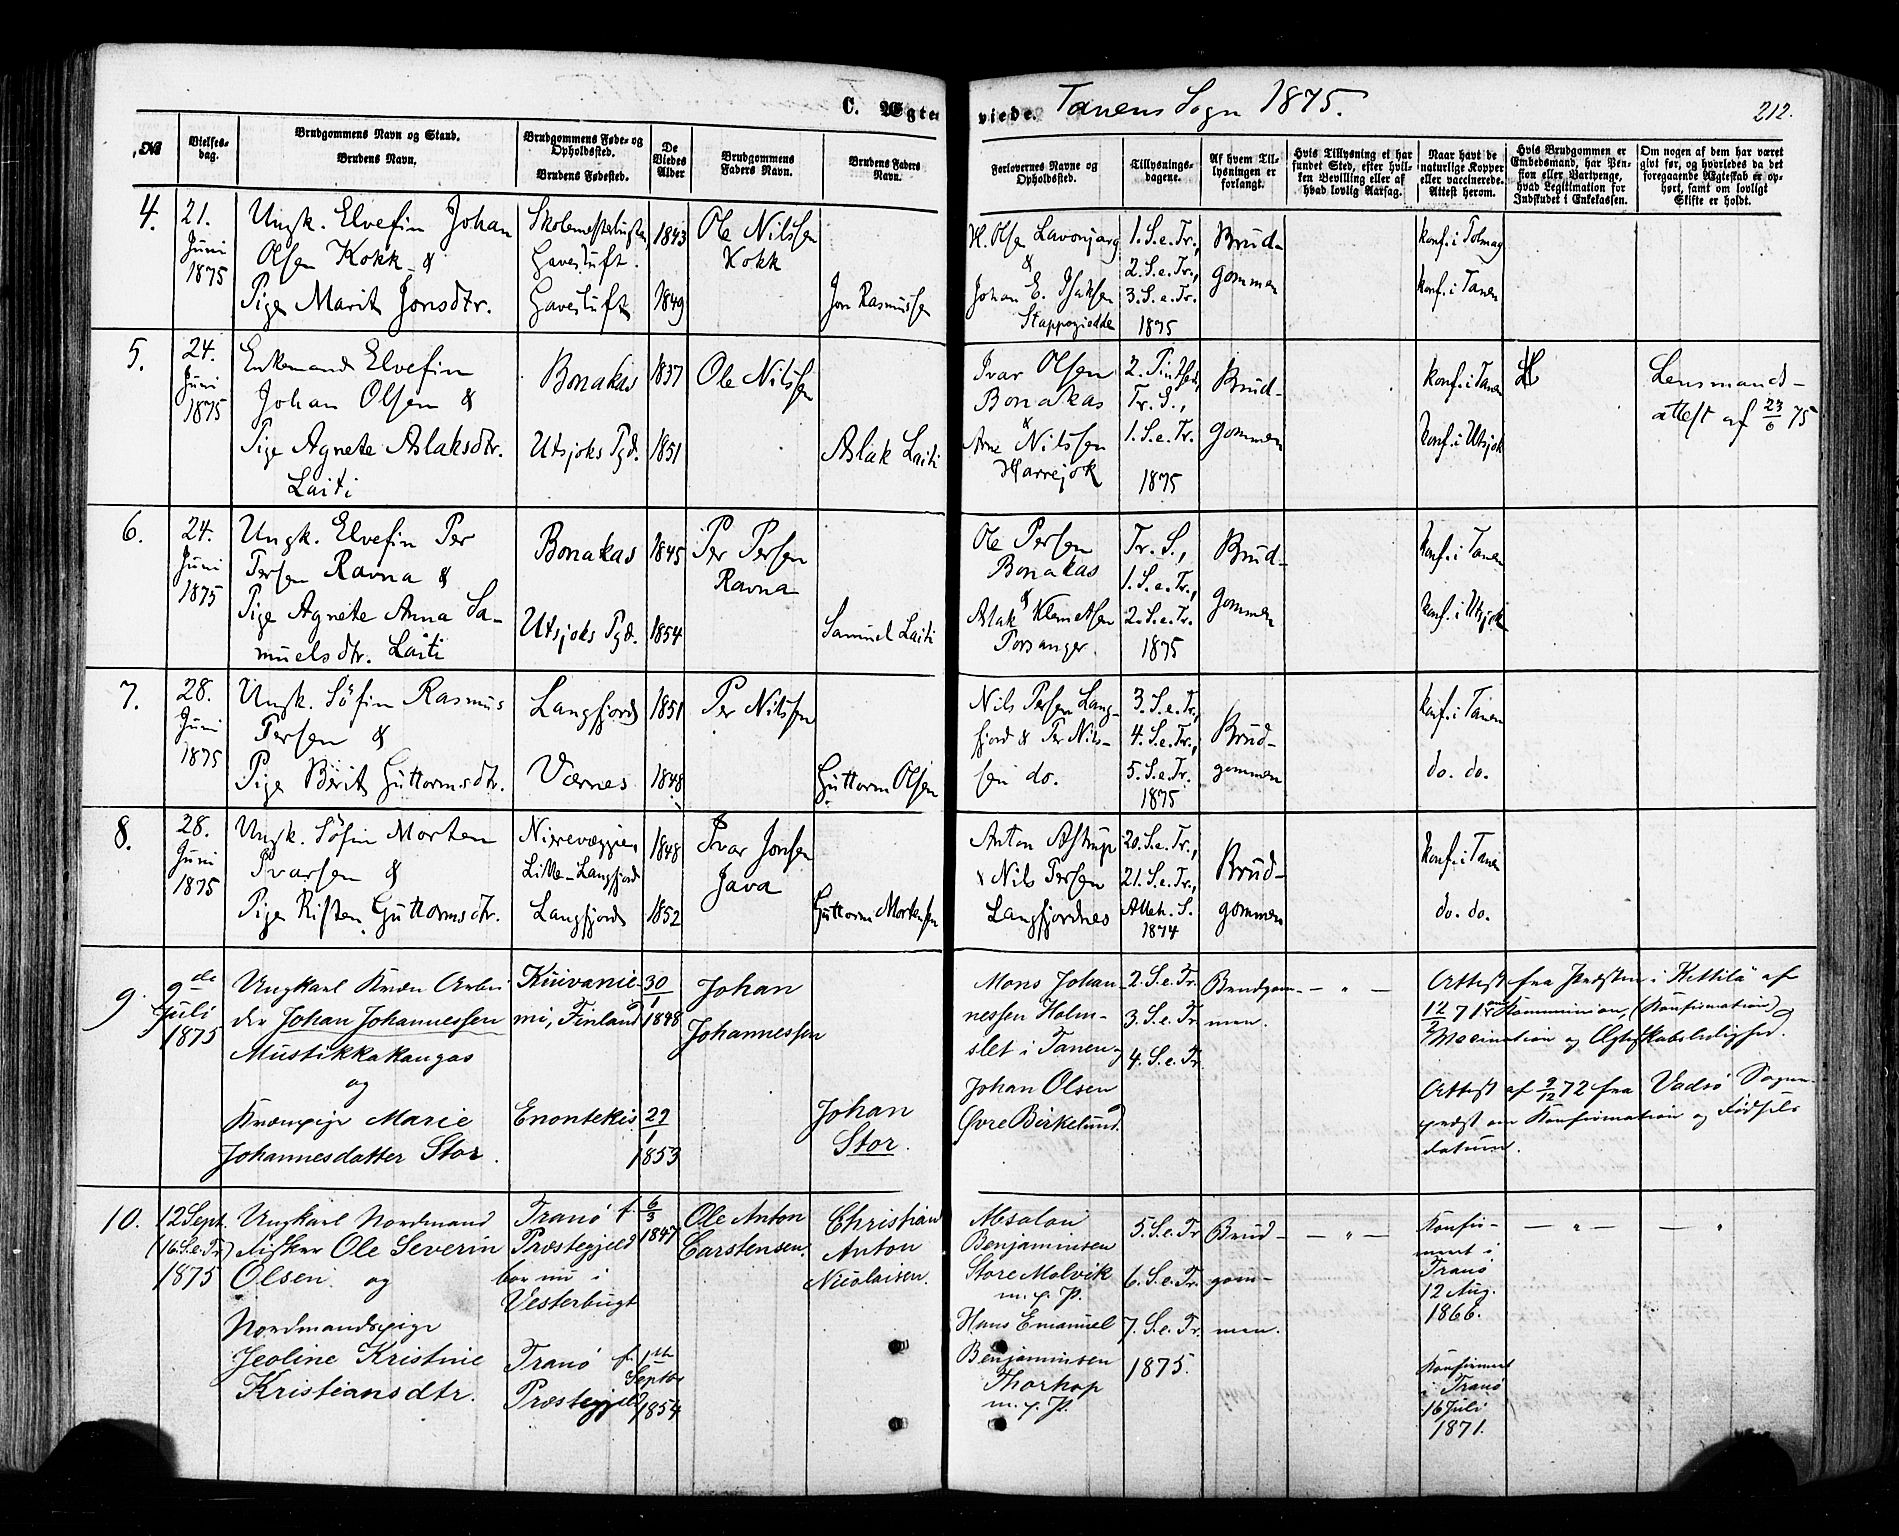 C. Ægteviede. Tanens Sogn 1875.
212.
No
Vielsesdag.
Brudgommens Navn og Stand.
Brudens Navn.
Brudgommens Føde- og Opholdssted.
Brudens Fødested.
De Viedes Alder
Brudgommens Faders Navn.
Brudens Faders Navn.
Forlovernes Navne og Opholdssted.
Tillysningsdagene.
Af hvem Tillysningen er forlangt.
Hvis Tillysning ei har fundet Sted, efter hvilken Bevilling eller af hvad lovlig Aarsag.
Naar havt de naturlige Kopper eller vaccinerede. Attest herom.
Hvis Brudgommen er Embedsmand, har Pension eller Vartpenge, hvad Legitimation for Indskudet i Enkekassen.
Om nogen af dem har været givt før, og hvorledes da det foregaaende Ægteskab er ophørt, samt om lovligt Skifte er holdt.
4.
21.
Juni
1875
Ungk. Elvefin Johan
Olsen Kokk &
Pige Marit Jonsdtr.
Gavesluft.
Gavesluft
1843
1849
Ole Nilssen
Kokk
Jon Rasmussen
H. Olsen Lavonjarg
&
Johan E. Isaksen
Stappogiedde
1. S. e. Tr.,
2. S. e. Tr.,
3. S. e. Tr.
1875
Brud-
gommen
konf. i Polmag
konf. i Tanen
5.
24.
Juni
1875
Enkemand Elvefin
Johan Olsen &
Pige Agnete Aslaksdtr.
Laiti
Bonakas
Utsjoks Pgd.
1837
1851
Ole Nilssen
Aslak Laiti
Ivar Olsen
Bonakas
&
Arne Nilssen
Harrejok
2. Pintsed.
Tr. S.,
1. S. e. Tr.
1875
Brud-
gommen
konf. i Tanen
konf. i Utsjok
Lensmands-
attest af 23/6 75
6.
24.
Juni
1875
Ungk. Elvefin Per
Persen Ravna &
Pige Agnete Anna Sa-
muelsdtr. Laiti
Bonakas
Utsjoks Pgd.
1845
1854
Per Persen
Ravna
Samuel Laiti
Ole Persen
Bonakas
&
Aslak Klemetsen
Porsanger.
Tr. S.,
1. S. e. Tr.,
2. S. e. Tr.
1875
Brud-
gommen
konf. i Tanen
konf. i Utsjok
7.
28.
Juni
1875
Ungk. Söfin Rasmus
Persen &
Pige Berit Guttormsdtr.
Langfjord
Værnes
1851
1848
Per Nilssen
Guttorm Olsen
Nils Persen Lang-
fjord & Per Nils-
sen do.
3. S. e. Tr.,
4. S. e. Tr.,
5. S. e. Tr.
1875
Brud-
gommen
konf. i Tanen
do. do.
8.
28.
Juni
1875
Ungk. Söfin Morten
Ivarsen &
Pige Risten Guttormsdtr.
Lille-Langfjord
Langfjord
1848
1852
Ivar Jonsen
Java
Guttorm Mortensen
Anton Astrup
& Nils Persen
Langfjordnes
20. S. e. Tr.,
21. S. e. Tr.,
Alleh. S.
1874
Brud-
gommen
konf. i Tanen
do. do.
9.
9de
Juli
1875
Ungkarl Kvæn Arbei
der Johan Johannessen
Mustikkakangas
og
Kvænpige Marie
Johannesdatter Stor.
Kuivanie-
mi, Finland
Enontekis
30/1
1848
29/1
1853
Johan
Johannessen
Johan
Stor.
Mons Johan-
nessen Holm-
slet i Tanen og
Johan Olsen
Øvre Birkelund
2. S. e. Tr.
3. S. e. Tr.
4. S. e. Tr.
Brudgom-
men.
— „ —
Attest fra Præsten i Kittilä af
12/2 71 om Kommunion, (Konfirmation)
Vaccination og Ægteskabsledighed.
Attest af 9/12 72 fra Vadsö Sogne-
præst om Konfirmation og Fødsels
datum.
10.
12 Sept.
(16. S. e. Tr.)
1875
Ungkarl Nordmand
Fisker Ole Severin
Olsen og
Nordmandspige
Jeoline Kristine
Kristiansdtr.
Tranö
Præstegjeld
bor nu i
Vesterbugt
Tranö
Præstegjeld
f. 6/3
1847
f. 1ste
Septbr
1854
Ole Anton
Carstensen.
Christian
Anton
Nicolaisen.
Absalon
Benjaminsen
Store Molvik
m. f. P.
Hans Emanuel
Benjaminsen
Thorhop
m. f. P.
5. S. e. Tr.
6. S. e. Tr.
7. S. e. Tr.
1875.
Brud-
gom-
men.
— „ —
Konfir-
meret i
Tranö
12 Aug.
1866.
Konfirmeret
i Tranö
16 Juli
1871.
— „ —
— „